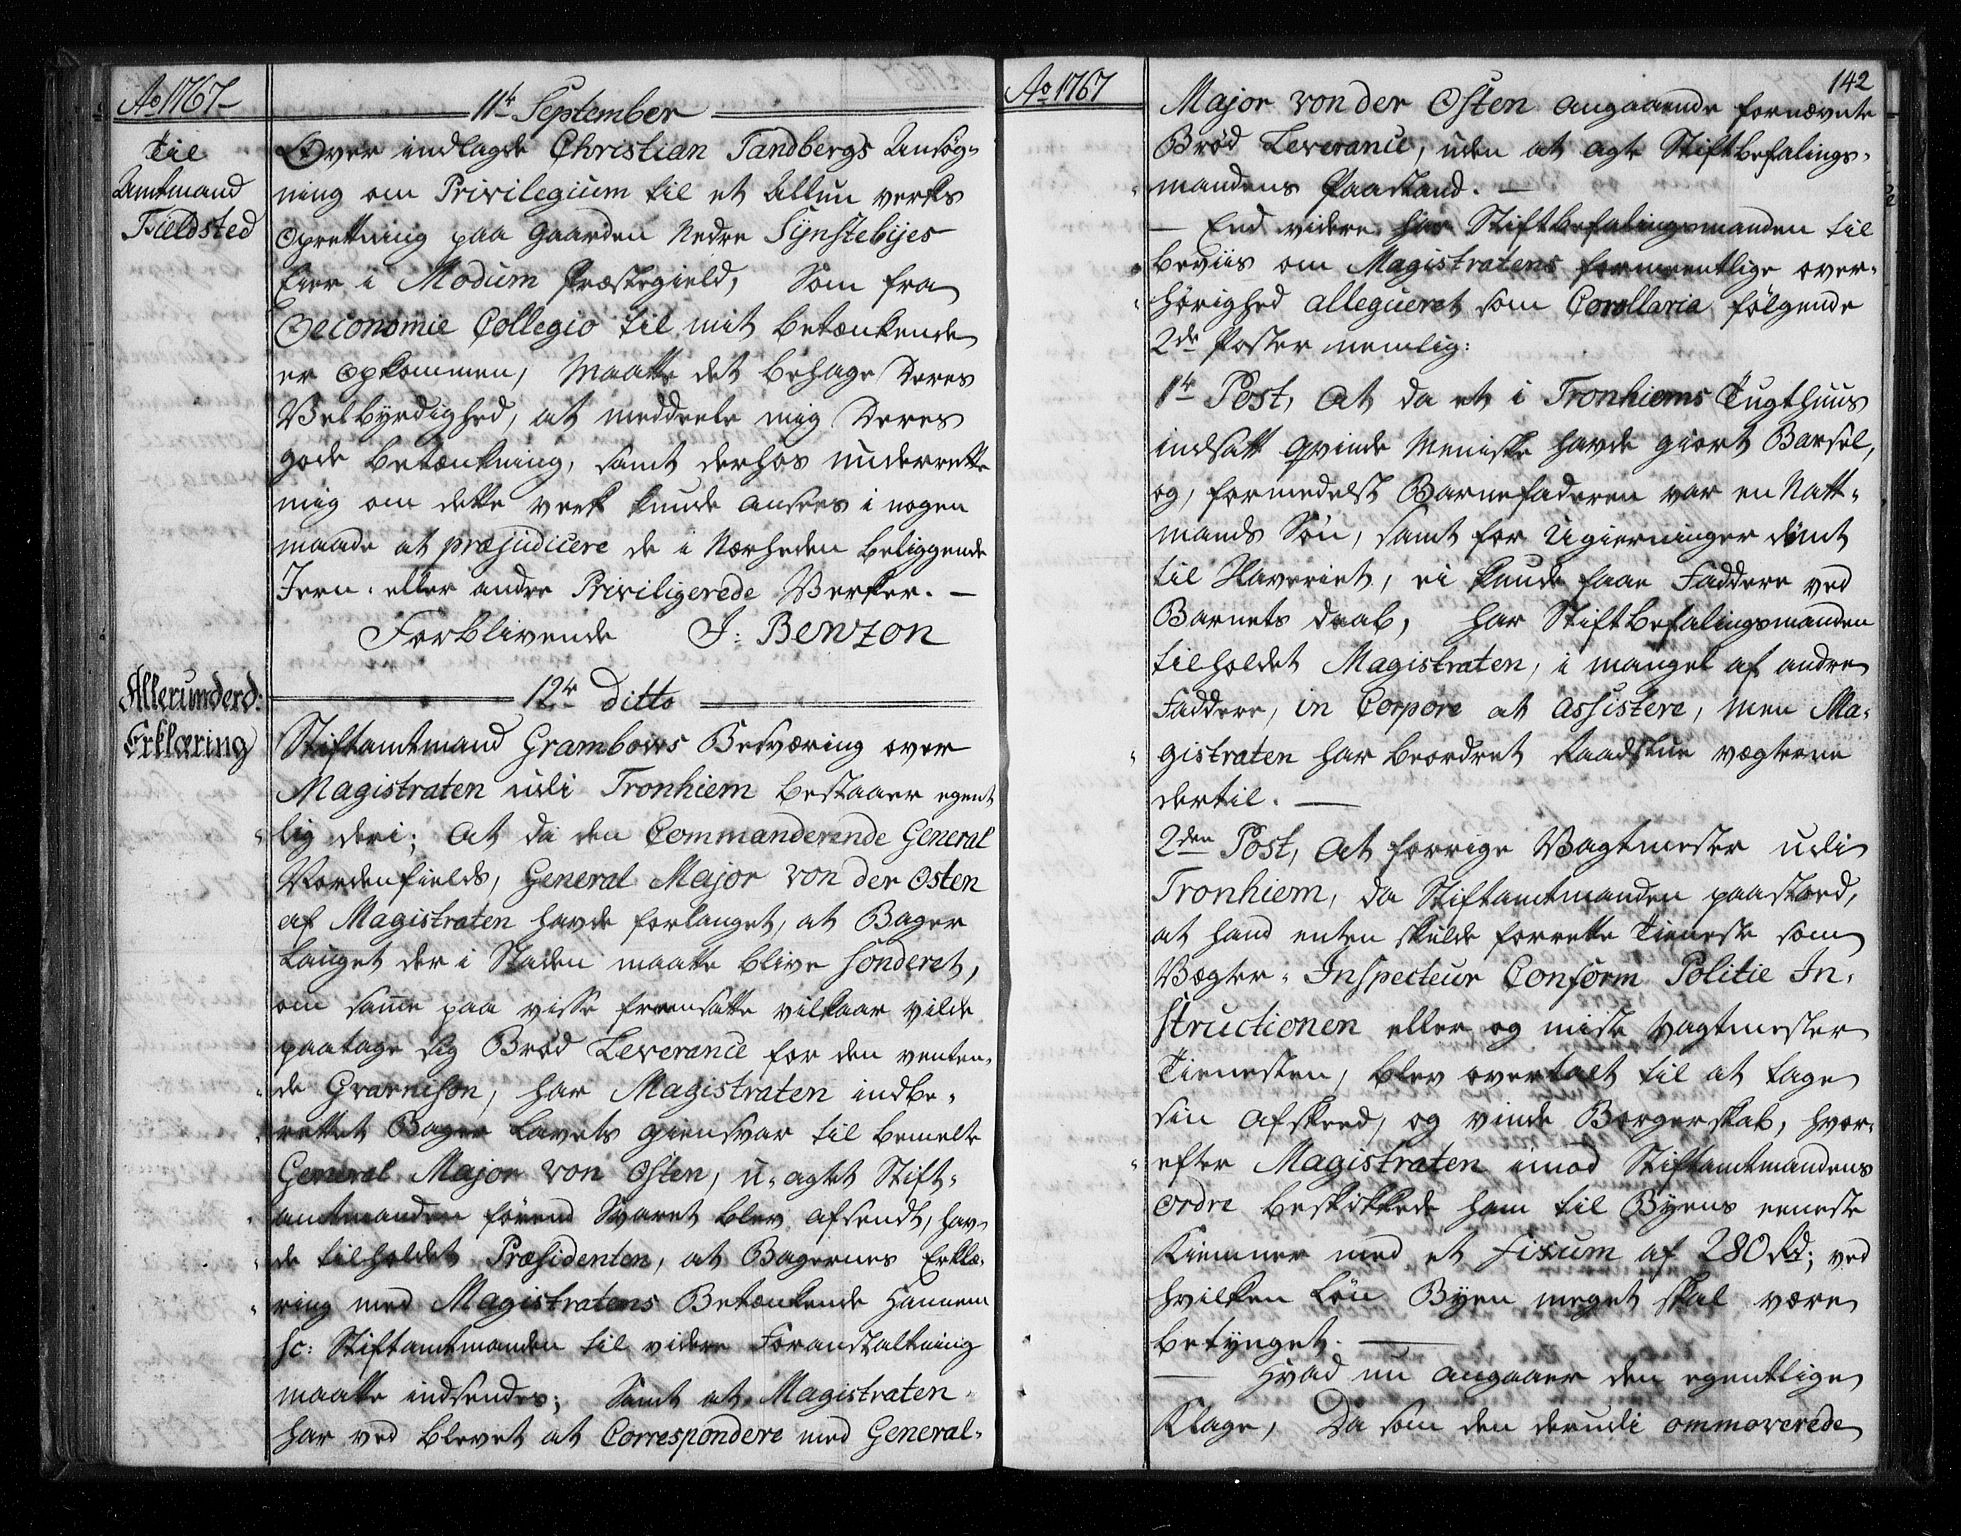 Ao 1767
11te September
Til
Amtmand
Fieldsted
Over indlagde Christian Sandbergs Ansøg-
ning om Privilegium til et Allun verks
Oprettning paa Gaarden Nedre Sÿnstebÿes
Eier i Modum Præstegield, Som fra
Oeconomie Collegio til mit betænkende
er opkommen, Maatte det behage Deres
Velbyrdighed, at meddeele mig Deres
gode betænkning, samt derhos underrette
mig om dette verk kunde ansees i nogen
maade at præjudicere de i Nærheden beliggende
Jern- eller andre Priviligerede Verker. —
Forblivende J: Benzon
Allerunderd:
Erklæring
12te ditto
Stiftamtmand Grambows Besværing over
Magistraten udi Tronhiem bestaaer egent
lig deri; At da den Commanderende General
Nordenfields, General Major von der Osten
af Magistraten havde forlanget, at Bager
Lauget der i Staden maatte blive sonderet,
om samme paa visse fremsatte vilkaar vilde
paatage sig Brød Leverance for den venten-
de Gvarnison, har Magistraten indbe-
rettet Bager Lavets giensvar til bemelte
General Major von Osten, u-agtet Stift-
amtmanden førend Svaret blev afsendt, hav-
de tilholdet Præsidenten, at Bagernes Erklæ-
ring med Magistratens Betænkende hannem
sc: Stiftamtmanden til videre Foranstaltning
maatte indsendes; Samt at Magistraten
har ved blevet at Correspondere med General-
Ao 1767
142
Major von der Osten angaaende fornævnte
Brød Leverance, uden at agte Stiftbefalings-
mandens Paastand. —
— End videre har Stiftbefalingsmanden til
beviis om Magistratens formeentlige over-
hørighed allegueret som Corollaria følgende
2de Poster nemlig:
1te Post, At da et i Tronhiems Tugthuus
indsatt Qvinde Meniske havde giort Barsel,
og, formedelst Barnefaderen var en Natt-
mands Søn, samt for Ugierninger dømt
til Slaveriet, ei kunde faae Faddere ved
Barnets daab, har Stiftbefalingsmanden
tilholdet Magistraten, i mangel af andre
Faddere, in Corpore at assistere, men Ma-
gistraten har beordret Raadstue vægterne
dertil. —
2den Post, At forrige Vagtmester udi
Tronhiem, da Stiftamtmanden paastoed,
at hand enten skulde forrette Tieneste som
Vægter-Inspecteur Conform Politie In-
structionen eller og miste Vagtmester
Tienesten, blev overtalt til at tage
sin afskeed, og vinde Borgerskab, hvor-
efter Magistraten imod Stiftamtmandens
Ordre beskikkede ham til Byens eeneste
Kiemner med et fixum af 280 Rd; ved
hvilken Løn Byen meget skal være
betynget. —
— Hvad nu angaaer den egentlige
Klage, Da som den derudi ommoverede